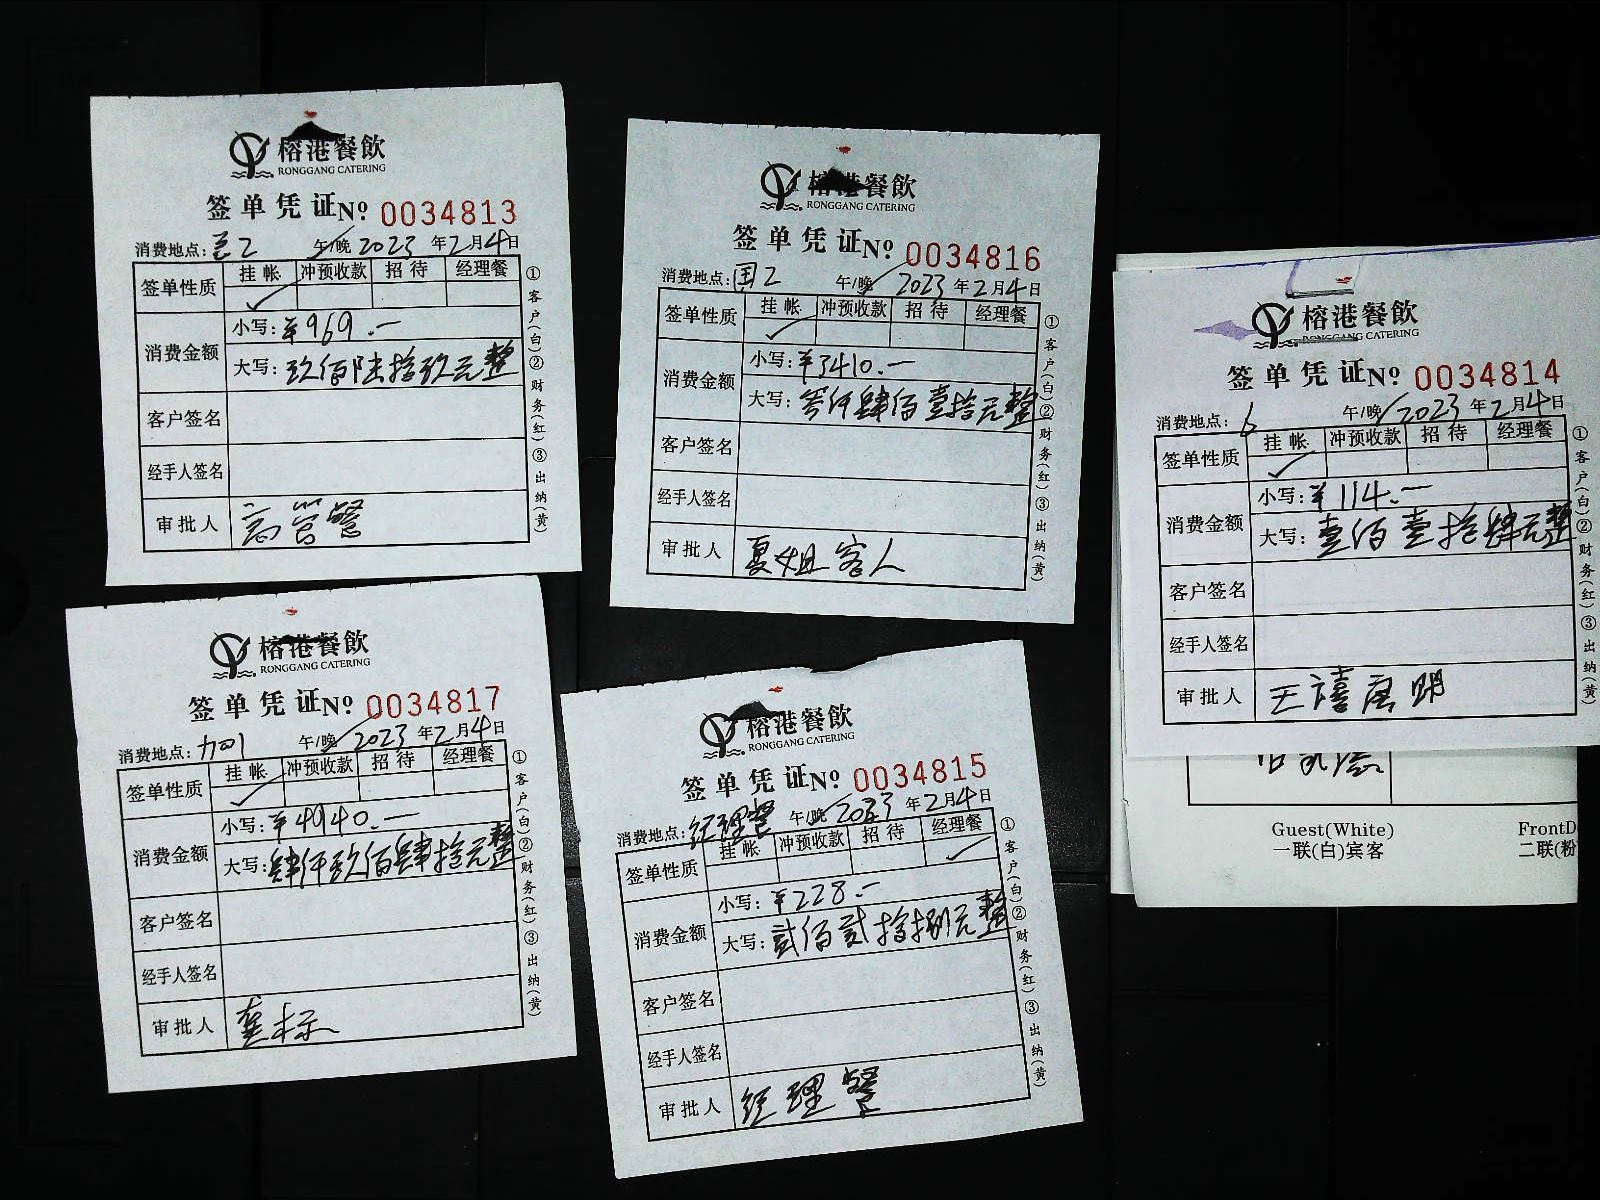 榕港餐飲
RONGGANG CATERING
签单凭证№ 0034813
消费地点: 午/晚 2023 年 2 月 4 日
签单性质 挂帐 冲预收款 招待 经理餐
✓
消费金额 小写: ¥969.一
大写: 玖佰陆拾玖元整
客户签名
经手人签名
审批人 高管餐
①客户(白)②财务(红)③出纳(黄)
榕港餐飲
RONGGANG CATERING
签单凭证№ 0034816
消费地点: 国2 午/晚 2023 年 2 月 4 日
签单性质 挂帐 冲预收款 招待 经理餐
✓
消费金额 小写: ¥3410.一
大写: 叁仟肆佰壹拾元整
客户签名
经手人签名
审批人 夏姐客人
①客户(白)②财务(红)③出纳(黄)
榕港餐飲
RONGGANG CATERING
签单凭证№ 0034814
消费地点: 6 午/晚 2023 年 2 月 4 日
签单性质 挂帐 冲预收款 招待 经理餐
✓
消费金额 小写: ¥114.一
大写: 壹佰壹拾肆元整
客户签名
经手人签名
审批人 王禧唐明
①客户(白)②财务(红)③出纳(黄)
Guest(White) FrontD
一联(白)宾客 二联(粉
榕港餐飲
RONGGANG CATERING
签单凭证№ 0034817
消费地点: 午/晚 2023 年 2 月 4 日
签单性质 挂帐 冲预收款 招待 经理餐
✓
消费金额 小写: ¥4940.一
大写: 肆仟玖佰肆拾元整
客户签名
经手人签名
审批人 龚标
①客户(白)②财务(红)③出纳(黄)
榕港餐飲
RONGGANG CATERING
签单凭证№ 0034815
消费地点: 经理餐 午/晚 2023 年 2 月 4 日
签单性质 挂帐 冲预收款 招待 经理餐
✓
消费金额 小写: ¥228.一
大写: 贰佰贰拾捌元整
客户签名
经手人签名
审批人 经理餐
①客户(白)②财务(红)③出纳(黄)